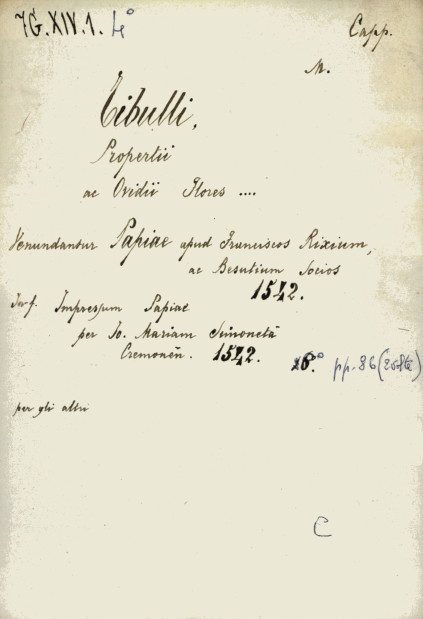 7G.XIV.1. 4°
Capp.
M.
Tibulli,
Propertii
ac Ovidii Flores ....
Venundantur Papiae apud Franciscos Rixium,
ac Besutium Socios
1542.
In f. Impressum Papiae
per Jo. Mariam Simonetā
Cremonen̄. 1542. 16.° pp. 86
per gli altri
C